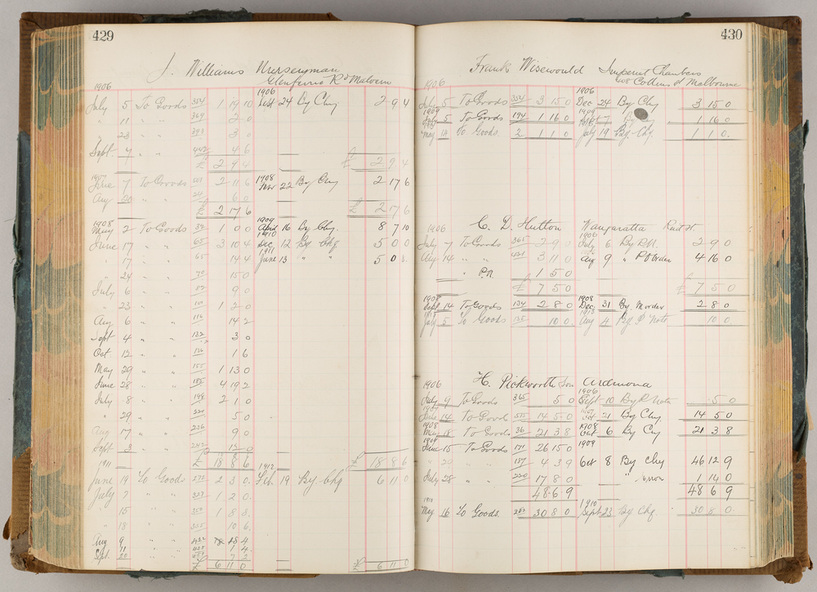 429
J. Williams Nurseryman
Glenferrie Rd Malvern
1906 1906
July 5 To Goods 1 19 10 Sept 24 By Chq 2 9 4
" 11 " " 2 0
" 23 " " 3 0
Sept 4 " " 4 6
£ 2 9 4 £ 2 9 4
1907 1908
June 7 To Goods 2 11 6 22 By Chq 2 17 6
Aug 20 " " 6 0
£ 2 17 6 £ 2 17 6
1908 1909
May 2 To Goods 1 0 0 April 16 By Chq 8 7 10
1910
June 17 " " 65 3 10 4 Dec 12 By Chq 5 0 0
1911
" 17 " " 65 14 4 June 13 " " 5 0
" 24 " " 15 0
July 6 " " 9 0
" 23 " " 1 2 0
Aug 6 " " 14 2
Sept 4 " " 3 0
Oct 12 " " 1 6
May 29 " " 1 13 0
June 28 " " 4 19 2
July 8 " " 2 1 0
" 29 " " 5 0
Aug 17 " " 9 0
Sept 3 " " 12 0
£ 18 8 6 £ 18 8 6
1911 1912
June 19 To Goods 2 3 0 Feb 19 By Chq 6 11 0
July 7 " " 1 2 0
" 15 " " 1 8 3
" 18 " " 10 6
Aug 9 " " 4
" 11 " " 1 4
Sept 20 " "
£ 6 11 0 £ 6 11 0
430
Frank Wisewould Imperial Chambers
Collins St Melbourne
1906 1906
July 5 To Goods 3 15 0 Dec 24 By Chq 3 15 0
5 To Goods 194 1 16 0 7 1 16 0
May To Goods 2 1 1 0 July 19 By Chq 1 1 0
C. D. Hutton Wangaratta
1906 1906
July 7 To Goods 365 2 9 0 July 6 By 2 9 0
Aug 14 " " 3 11 0 Aug 9 " P Order 4 16 0
" P.N. 1 5 0
£ 7 5 0 £ 7 5 0
1908
Sept 14 To Goods 134 2 8 0 Dec 31 By Morder 2 8 0
July 5 To Goods 10 0 Aug 4 By P Note 10 0
H. Pickworth Son Ardmona
1906 1906
July 9 To Goods 365 5 0 Sept 10 By P Note 5 0
June 14 To Goods 14 5 0 21 By Chq 14 5 0
1908 1908
May 18 To Goods 36 21 3 8 Oct 6 By Chq 21 3 8
1909 1909
June 15 To Goods 171 26 15 0
" 20 " " 187 4 3 9 Oct 8 By Chq 46 12 9
July 28 " " 17 8 0 " " 1 14 0
48 6 9 48 6 9
1910
May 16 To Goods 30 8 0 Sept 23 By Chq 30 8 0